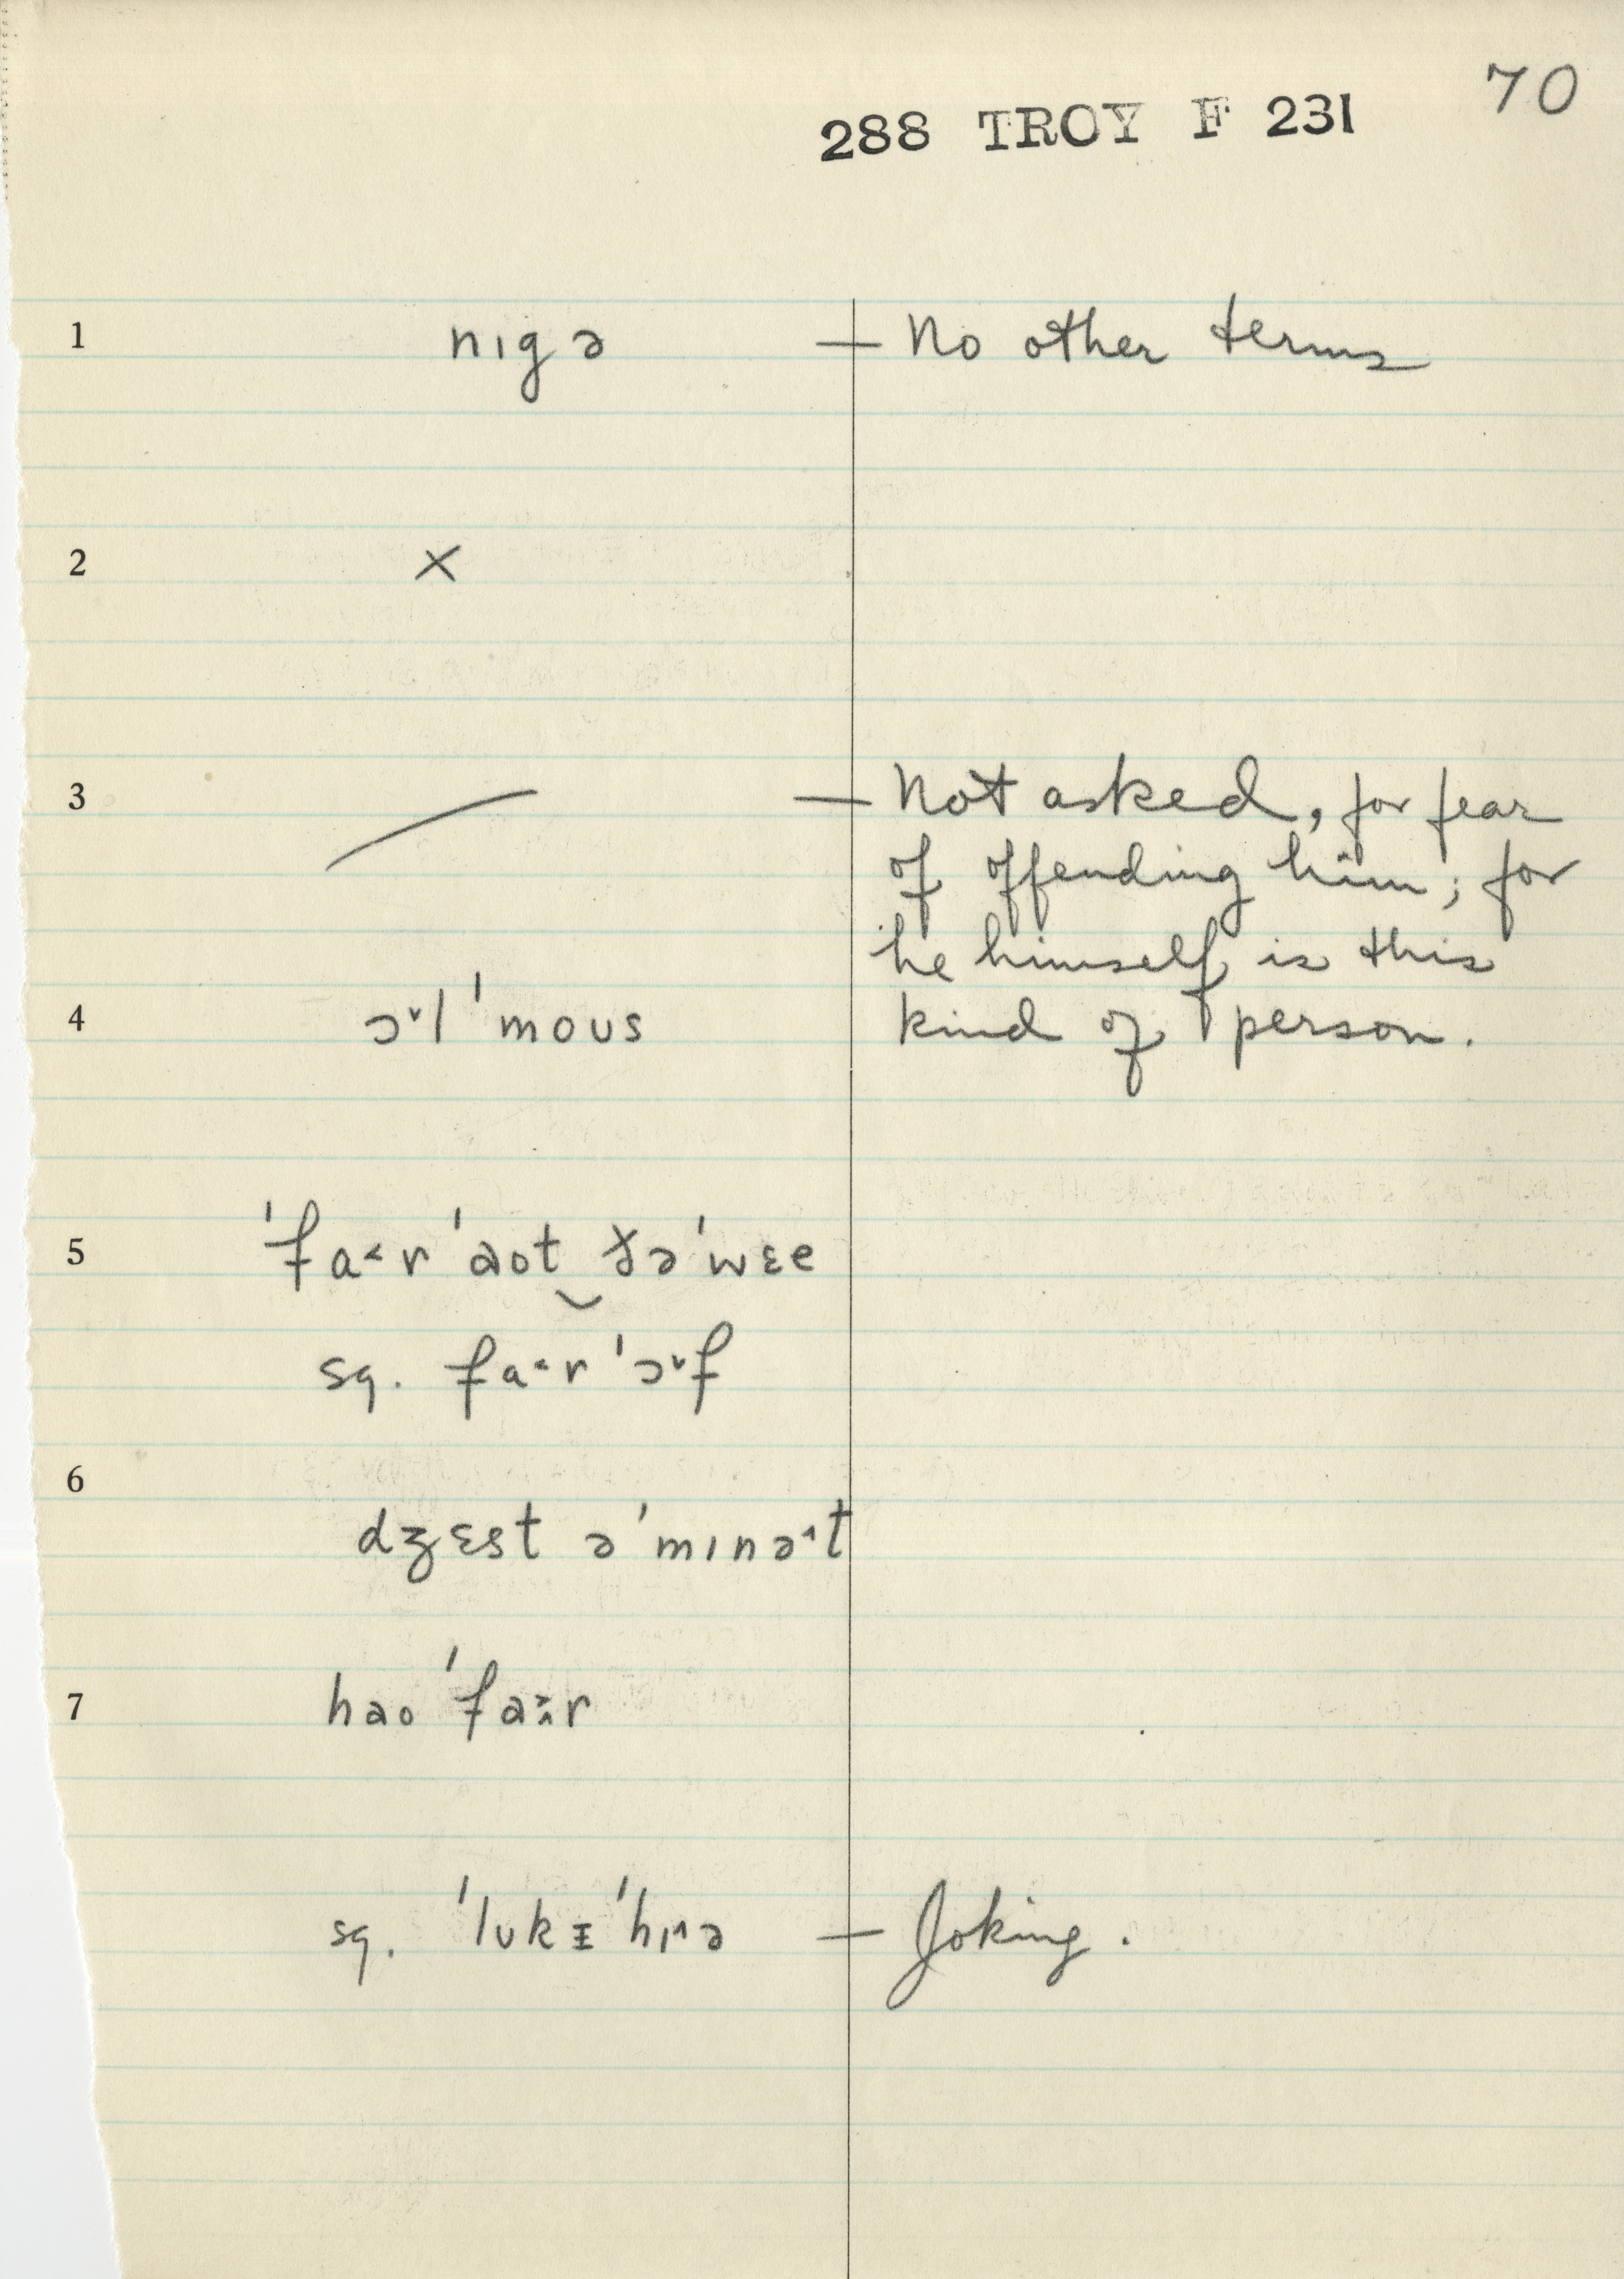 70
288 TROY F 231
1 nɪgə — No other terms
2 ×
3 — Not asked, for fear
of offending him; for
he himself is this
kind of person.
4 ɔ˅l ˈmoʊs
5 ˈfa˂r ˈaot ðə ˈwɛe
sq. fa˂r ˈɔ˅f
6 dʒɛst ə ˈmɪnə˄t
7 hao ˈfa
sq. ˈlʊk ᵻ ˈhɪ˄ə — Joking.